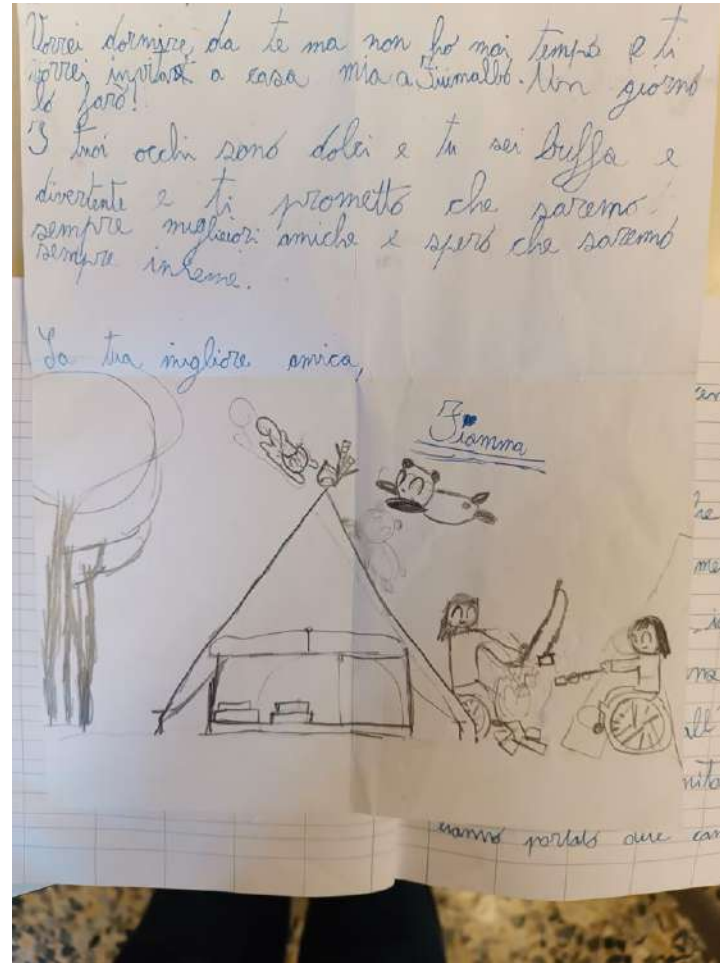 Vorrei dormire da te ma non ho mai tempo e ti
vorrei a casa mia a Fiumalbo. Un giorno
lo farò!
I tuoi occhi sono dolci e tu sei buffa e
divertente e ti prometto che saremo
sempre miglieiori amiche e spero che saremo
sempre insieme.
La tua migliore amica,
Fiamma